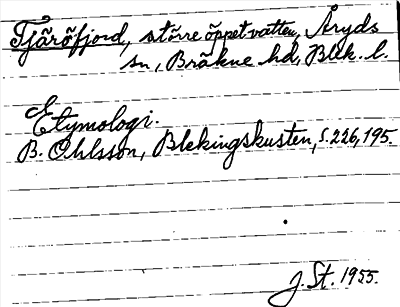 Tjäröfjord, större öppet vatten, Åryds
sn, Bräkne hd, Blek. l.
Etymologi.
B. Ohlsson, Blekingskusten, s. 226, 195.
J. St. 1955.